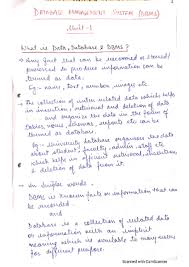 DATABASE MANAGEMENT SYSTEM (DBMS)
Unit-1
What is Data, Database & DBMS?
Any fact that can be recorded or stored/
processed to produce information can be
termed as data.
Eg:- name, text, number, image etc
The collection of inter related data which helps
in insertion, retrieval and deletion of data
and organize the data in the form of
tables, views, schemas, reports etc can be
termed as database.
Eg:- university database organizes the data
about student, faculty, admin staff etc
which helps in efficient retrieval, insertion
& deletion of data from it.
In Simple words
DBMS is known facts or information that can
be recorded
and
Database is a collection of related data
or information with an implicit
meaning which is available to many users
for different purpose.
Scanned with CamScanner